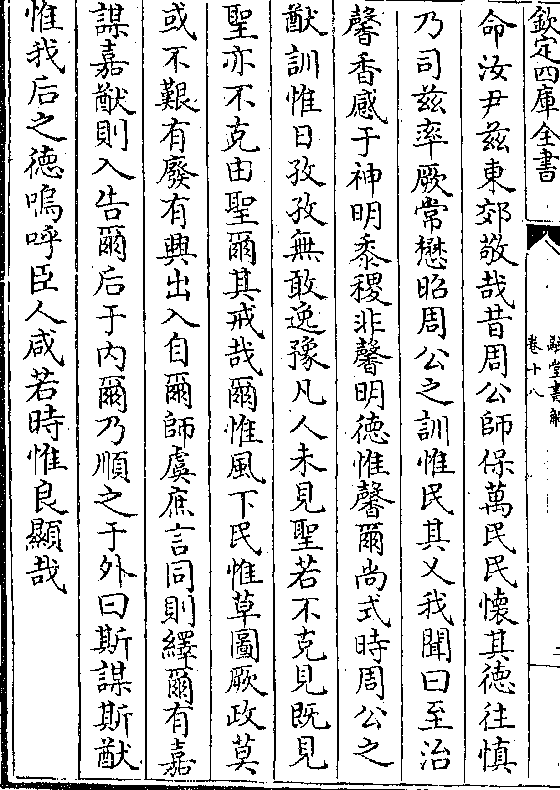 欽定四庫全書
融堂書解
卷十八
二
命汝尹兹東郊敬哉昔周公師保萬民民懷其德往慎
乃司兹率厥常懋昭周公之訓惟民其乂我聞曰至治
馨香感于神明黍稷非馨明德惟馨爾尚式時周公之
猷訓惟日孜孜無敢逸豫凡人未見聖若不克見既見
聖亦不克由聖爾其戒哉爾惟風下民惟草圖厥政莫
或不艱有廢有興出入自爾師虞庶言同則繹爾有嘉
謀嘉猷則入告爾后于内爾乃順之于外曰斯謀斯猷
惟我后之德嗚呼臣人咸若時惟良顯哉